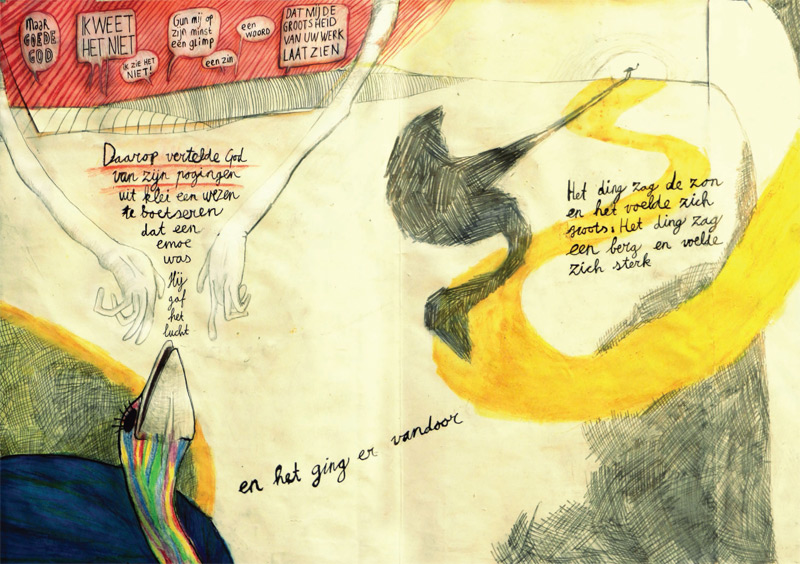 MAAR
GOEDE
GOD
K WEET
HET NIET
IK ZIE HET
NIET!
Gun mij op
zijn minst
een glimp
een zin
een
WOORD
DAT MIJ DE
GROOTSHEID
VAN UW WERK
LAAT ZIEN
Daarop vertelde God
van zijn pogingen
uit klei een wezen
te boetseren
dat een
emoe
was
Hij
gaf
het
lucht
en het ging er vandoor
Het ding zag de zon
en het voelde zich
groots. Het ding zag
een berg en voelde
zich sterk